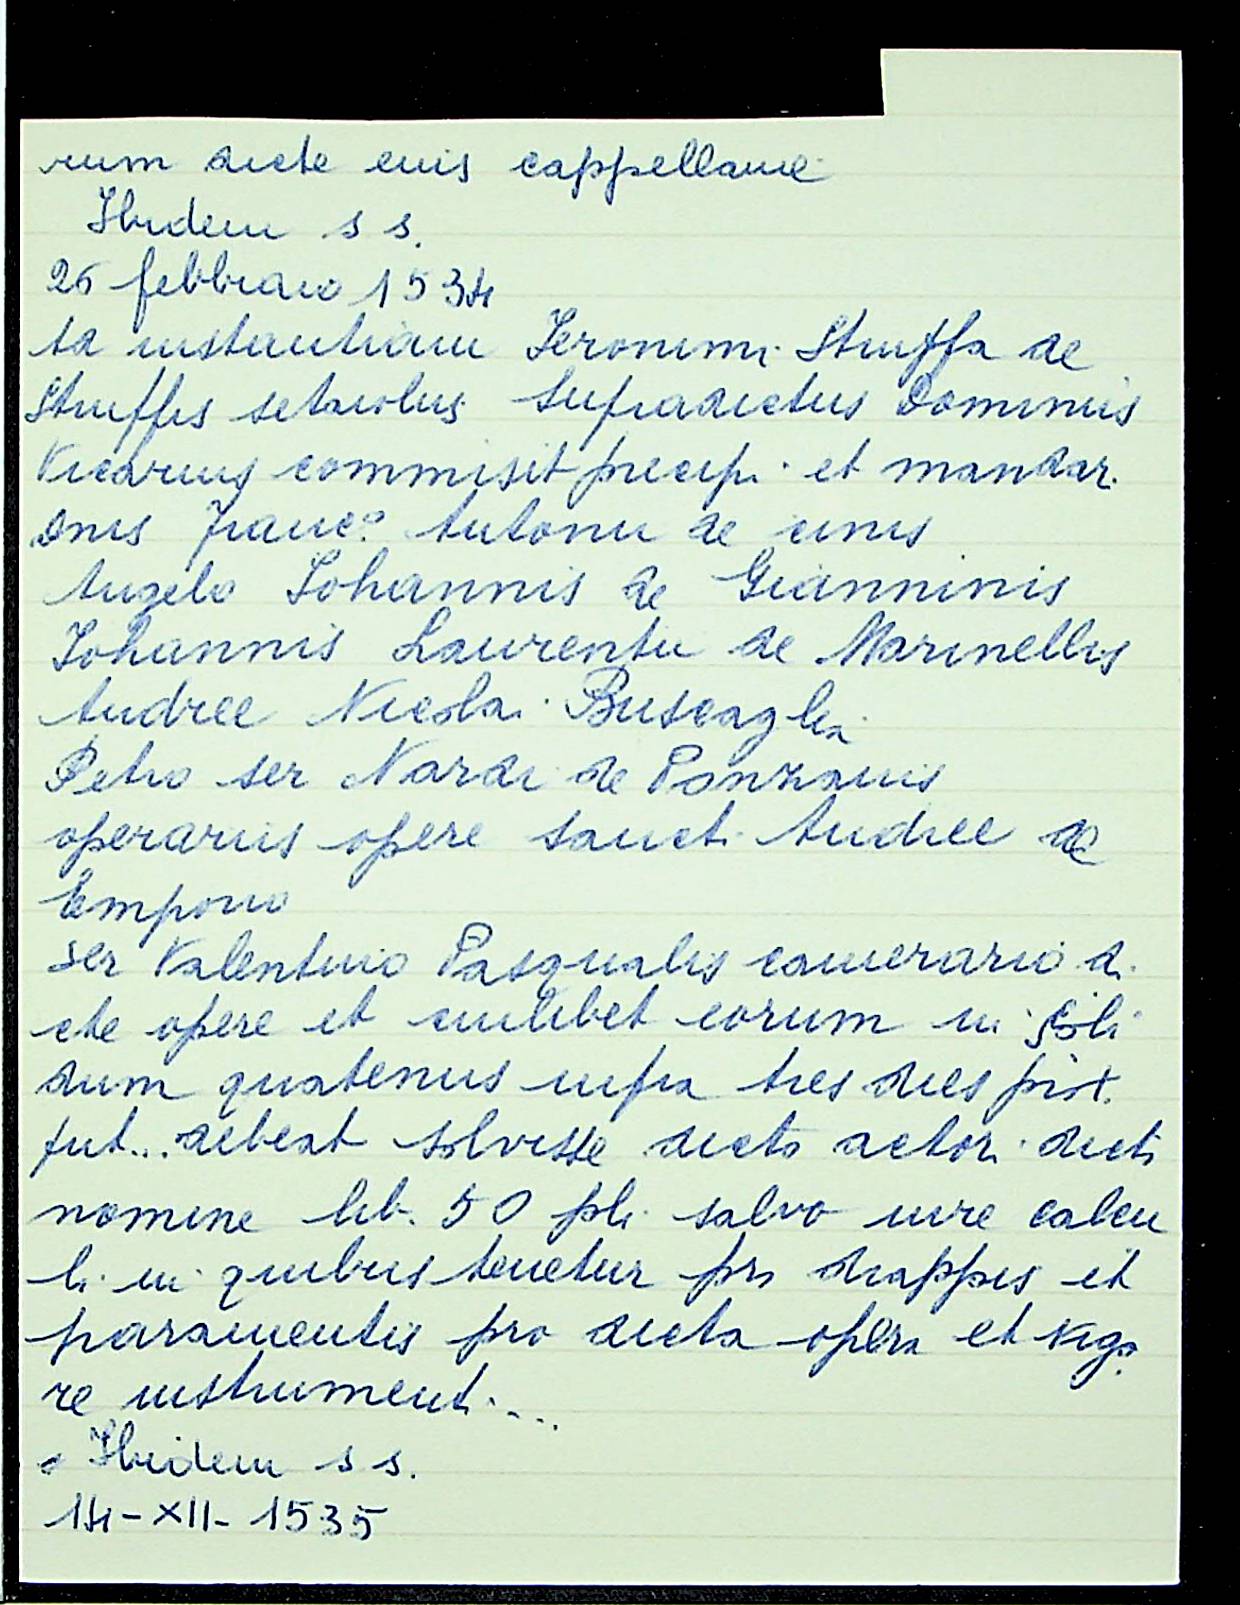 rum dicte euis cappellanie
Ibidem s s.
26 febbraio 1534
Ad instantiam Ieronimi Stuffa de
Stuffis setaiolus supradictus Dominus
Vicarius commisit precipi et mandari
Dnis Franc.º Antonii de cinis
Angelo Iohannis de Gianninis
Iohannis Laurentii de Marinellis
Andree Nicolai Buscaglia
Petro ser Nardi de Ponzanis
operariis opere sancti Andree de
Emporio
ser Valentino Pasqualis camerario di
cte opere et cuilibet eorum in soli
dum quatenus infra tres dies prox.
fut... debeat solvisse dicto actori dicti
nomine lib. 50 pli salvo iure calcu
li in quibus tenetur pro drappis et
paramentis pro dicta opera et vigo
re instrumenti ....
Ibidem s s.
14-XII-1535